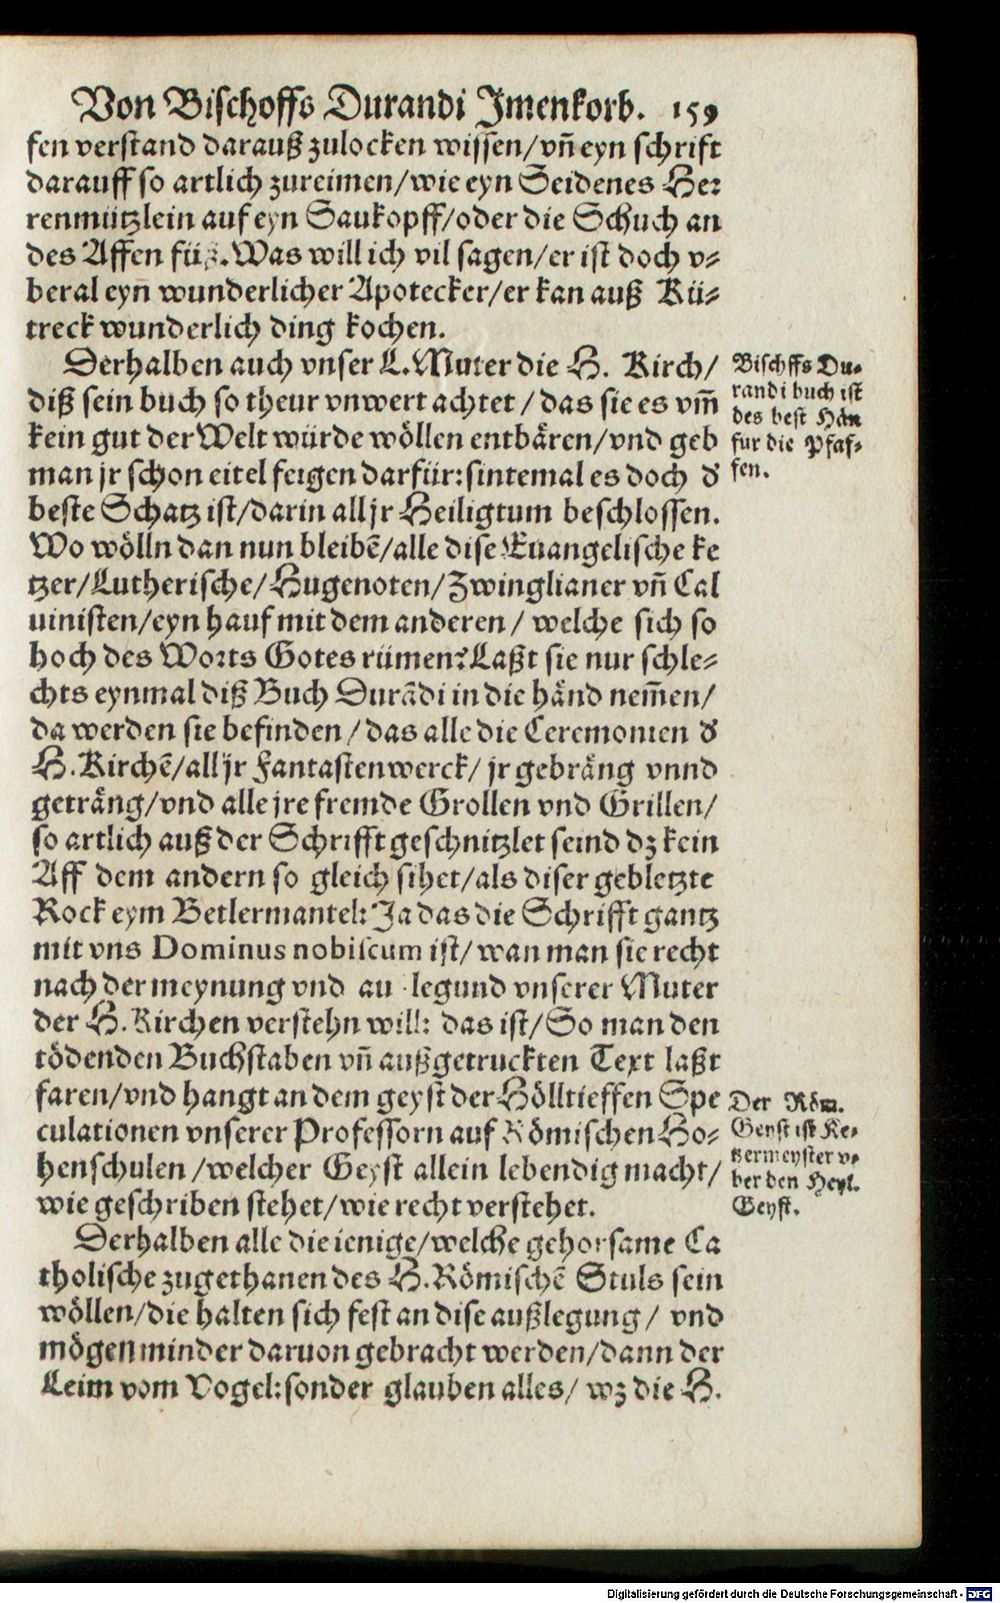 Von Bischoffs Durandi Jmenkorb. 159
fen verstand darauß zulocken wissen/vñ eyn schrift
darauff so artlich zureimen/wie eyn Seidenes Her
renmützlein auf eyn Saukopff/oder die Schuch an
des Affen füß. Was will ich vil sagen/er ist doch v⸗
beral eyn̄ wunderlicher Apotecker/er kan auß Kü⸗
treck wunderlich ding kochen.
Derhalben auch vnser L. Muter die H. Kirch/
diß sein buch so theur vnwert achtet/das sie es vm̄
kein gut der Welt würde wöllen entbären/vnd geb
man jr schon eitel feigen darfür: sintemal es doch d̕
beste Schatz ist/darin all jr Heiligtum beschlossen.
Wo wölln dan nun bleibē/alle dise Euangelische ke
tzer/Lutherische/Hugenoten/Zwinglianer vñ Cal
uinisten/eyn hauf mit dem anderen/welche sich so
hoch des Worts Gotes rümen? Laßt sie nur schle⸗
chts eynmal diß Buch Durādi in die händ nem̄en/
da werden sie befinden/das alle die Ceremonien d̕
H. Kirchē/all jr Fantastenwerck/jr gebräng vnnd
geträng/vnd alle jre fremde Grollen vnd Grillen/
so artlich auß der Schrifft geschnitzlet seind dz kein
Aff dem andern so gleich sihet/als diser gebletzte
Rock eym Betlermantel: Ja das die Schrifft gantz
mit vns Dominus nobiscum ist/wan man sie recht
nach der meynung vnd au legund vnserer Muter
der H. Kirchen verstehn will: das ist/So man den
tödenden Buchstaben vñ außgetruckten Text laßt
faren/vnd hangt an dem geyst der Hölltieffen Spe
culationen vnserer Professorn auf Römischen Ho⸗
henschulen/welcher Geyst allein lebendig macht/
wie geschriben stehet/wie recht verstehet.
Derhalben alle die ienige/welche gehorsame Ca
tholische zugethanen des H. Römischē Stuls sein
wöllen/die halten sich fest an dise außlegung/vnd
mögen minder daruon gebracht werden/dann der
Leim vom Vogel: sonder glauben alles/wz die H.
Bischffs Du⸗
randi buch ist
des best Hän
fur die Pfaf⸗
fen.
Der Röm.
Geyst ist Ke⸗
tzermeyster v⸗
ber den Heyl.
Geyst.
Digitalisierung gefördert durch die Deutsche Forschungsgemeinschaft - DFG